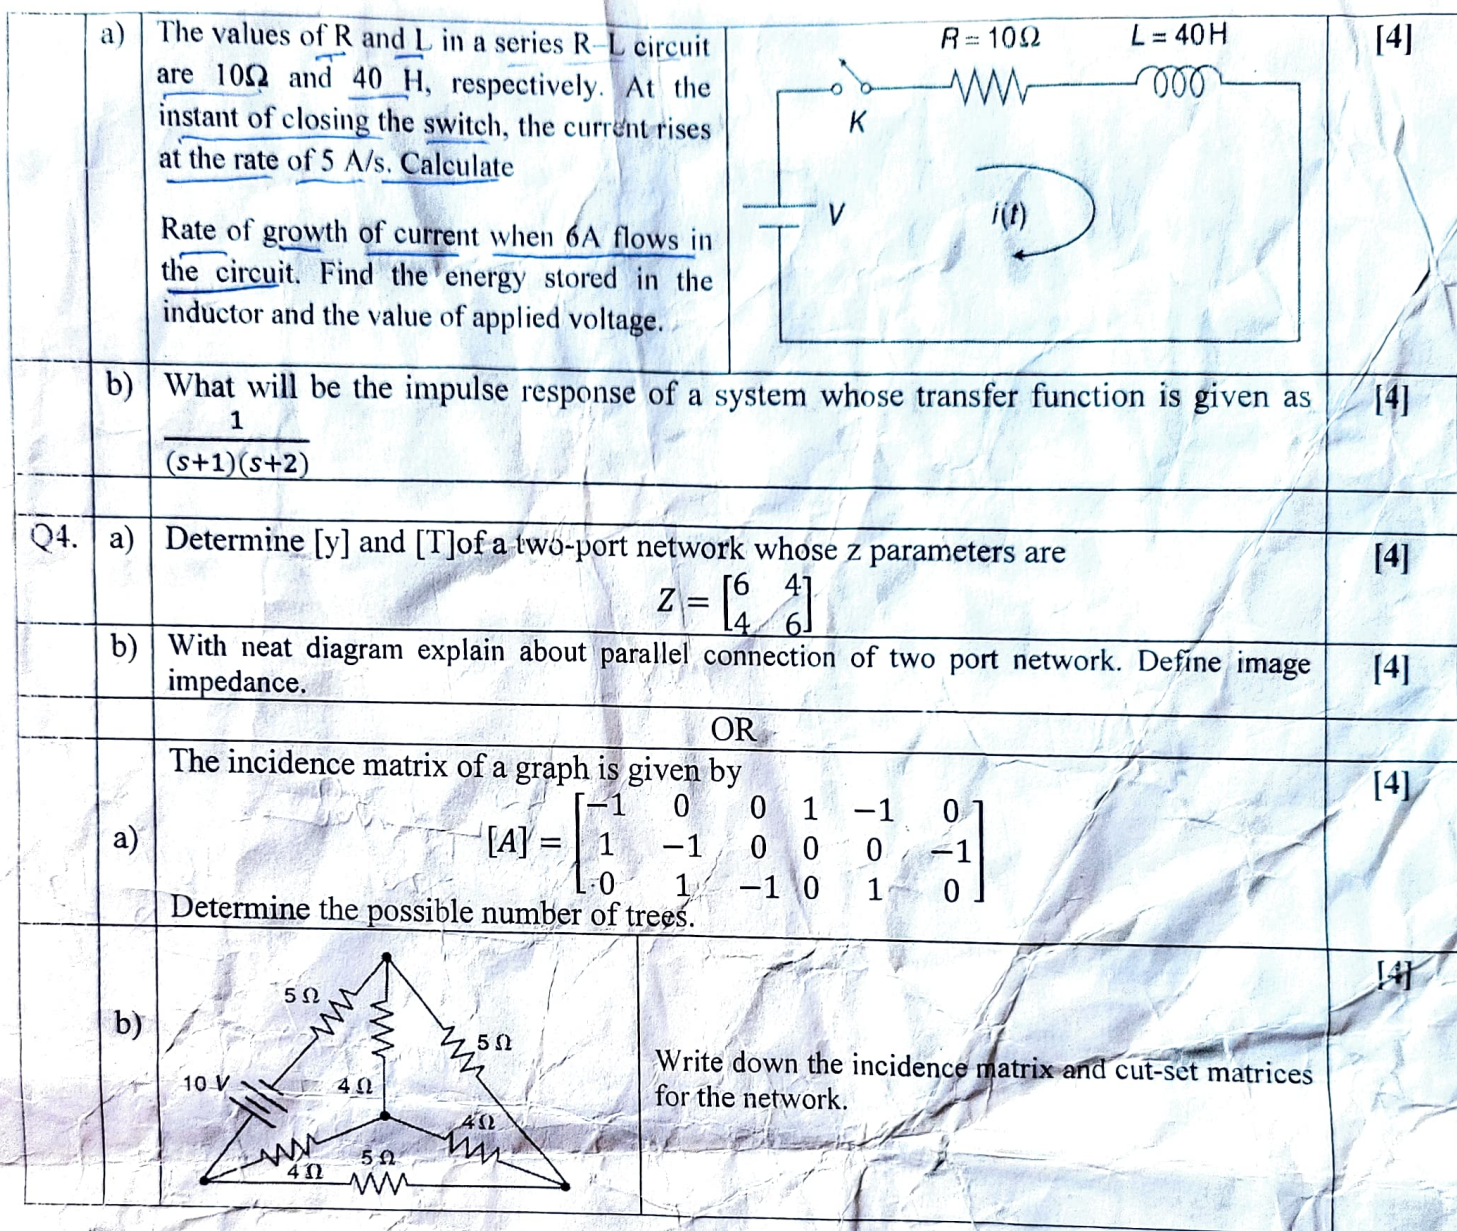 a) The values of R and L in a series R-L circuit
are 10Ω and 40 H, respectively. At the
instant of closing the switch, the current rises
at the rate of 5 A/s. Calculate
Rate of growth of current when 6A flows in
the circuit. Find the energy stored in the
inductor and the value of applied voltage.
R = 10Ω L = 40H
K
V
i(t)
[4]
b) What will be the impulse response of a system whose transfer function is given as [4]
1
(s+1)(s+2)
Q4. a) Determine [y] and [T]of a two-port network whose z parameters are [4]
Z = [6 4]
[4 6]
b) With neat diagram explain about parallel connection of two port network. Define image [4]
impedance.
OR
The incidence matrix of a graph is given by [4]
−1 0 0 1 −1 0
a) [A] = 1 −1 0 0 0 −1
0 1 −1 0 1 0
Determine the possible number of trees.
b) [4]
5 Ω
5 Ω
10 V
4 Ω
4 Ω
4 Ω
5 Ω
Write down the incidence matrix and cut-set matrices
for the network.